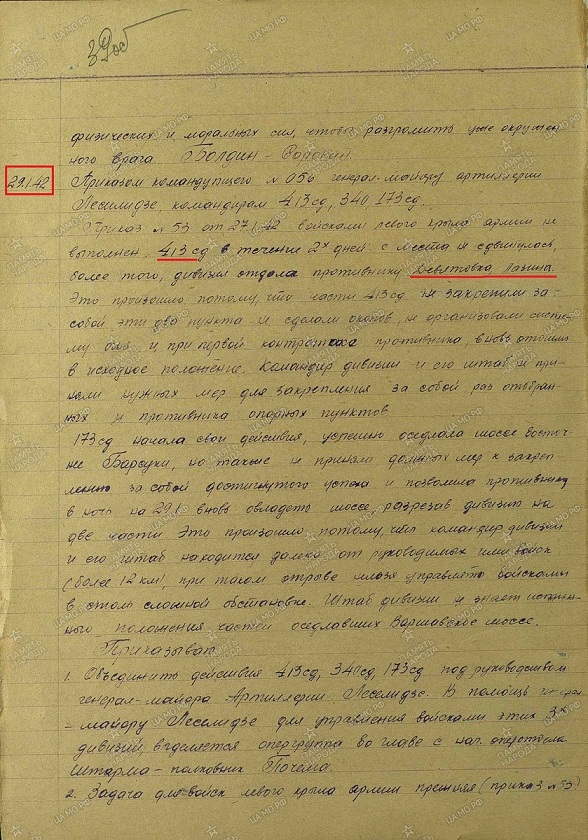 39об
физических и моральных сил, чтобы разгромить уже окружен-
ного врага Болдин - Сорокин
29.1.42 Приказом командующего № 056 генерал-майору артиллерии
Леселидзе, командирам 413 сд, 340 173 сд.
Приказ № 53 от 27.1.42 войсками левого крыла армии не
выполнен. 413 сд в течение 2х дней с места не сдвинулась,
более того, дивизия отдала противнику Девятовка Лазина
Это произошло потому, что части 413 сд не закрепили за
собой эти два пункта не сделали окопов, не организовали систе-
му огня и при первой контратаке противника вновь отошли
в исходное положение. Командир дивизии и его штаб не при-
няли нужных мер для закрепления за собой раз отобран-
ных у противника опорных пунктов
173 сд начала свои действия, успешно оседлала шоссе восточ-
нее Барсуки, но также не приняла должных мер к закреп-
лению за собой достигнутого успеха и позволила противнику
в ночь на 29.1 вновь овладеть шоссе, разрезав дивизию на
две части Это произошло потому, что командир дивизии
и его штаб находится далеко от руководимых ими войск
(более 12 км), при таком отрыве нельзя управлять войсками
в этой сложной обстановке. Штаб дивизии не знает истин-
ного положения частей оседлавших Варшавское шоссе.
Приказываю
1. Объединить действия 413 сд, 340 сд, 173 сд под руководством
генерал-майора Артиллерии Леселидзе. В помощь
- майору Леселидзе для управления войсками этих 3х
дивизий, выделяется опергруппа во главе с нач. оперотдела
Штарма - полковник Почема.
2. Задача для войск левого крыла армии прежняя (приказ № 53)